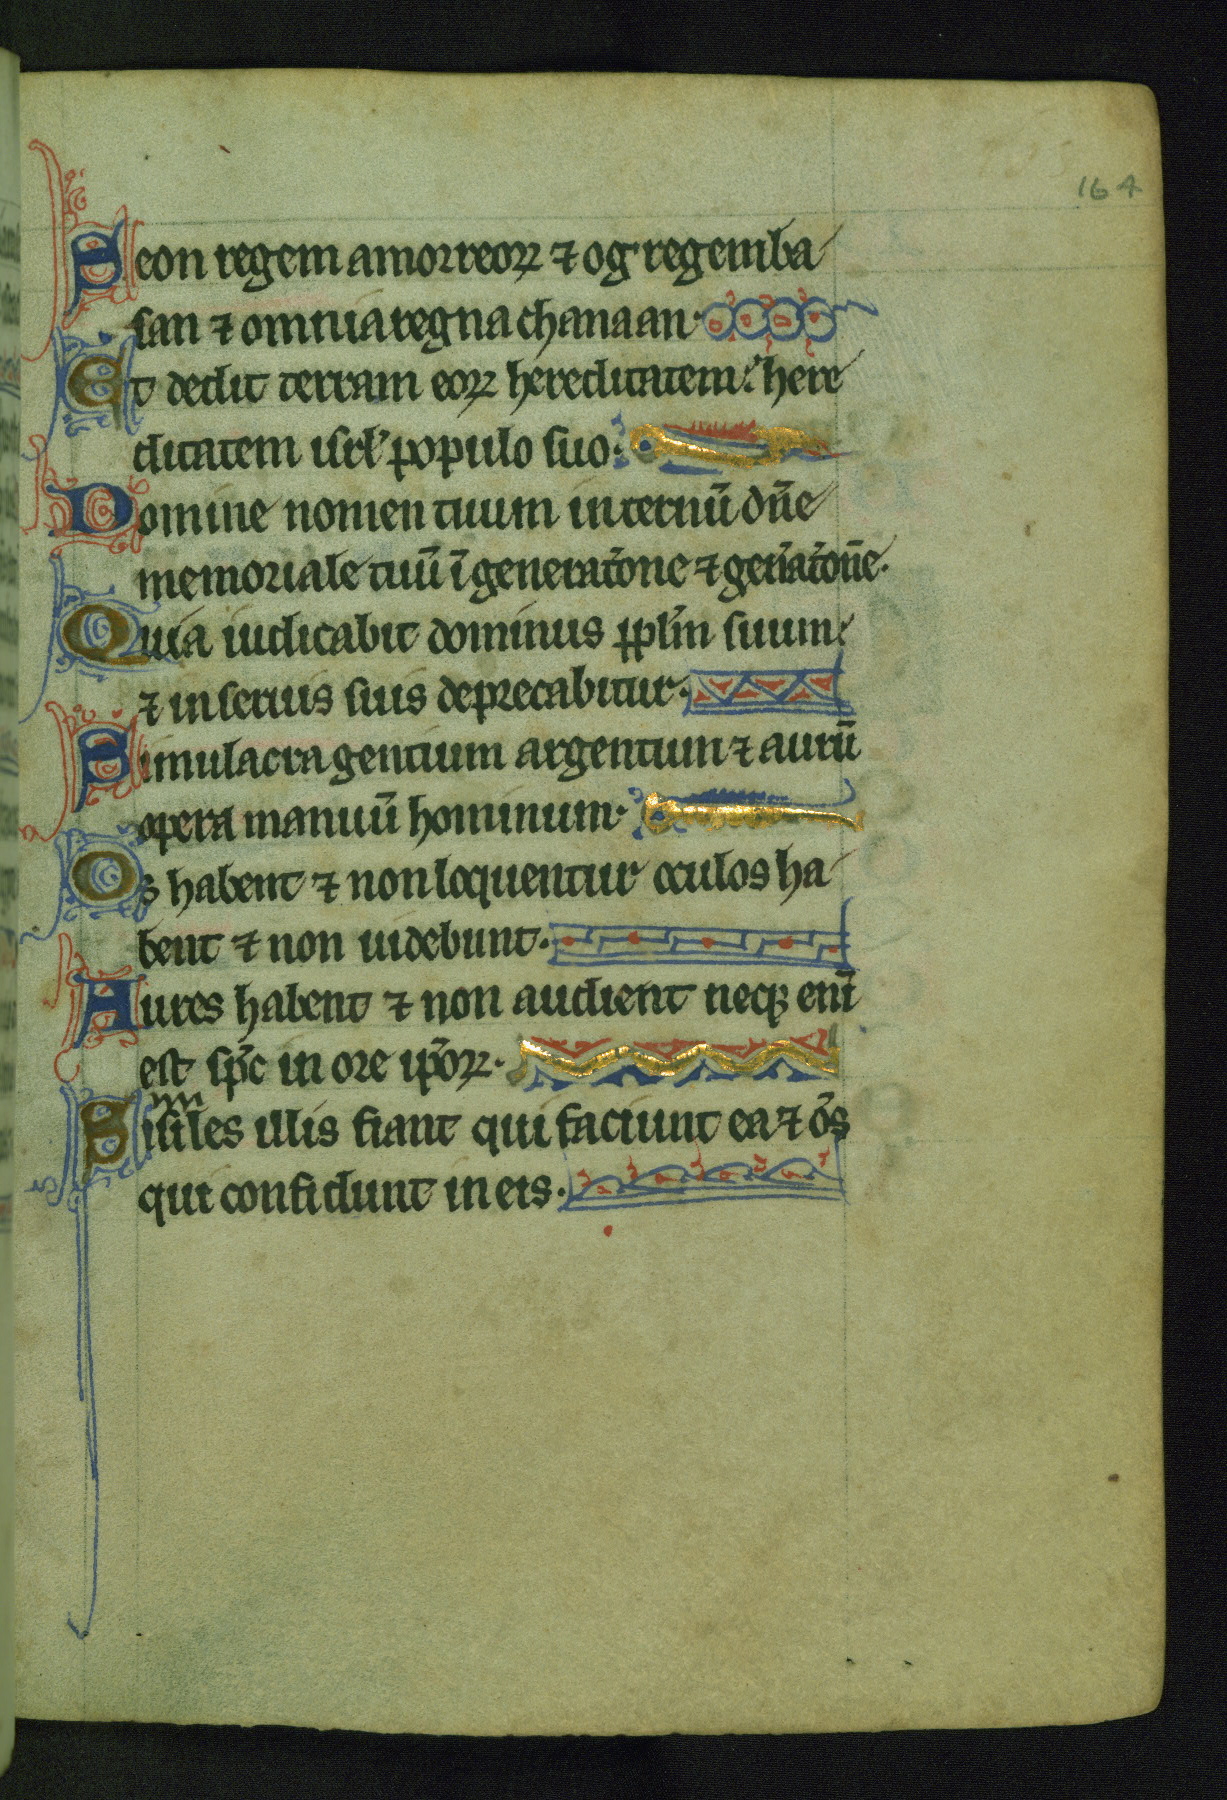 164
Seon regem amorreoꝝ ⁊ og regem ba
san ⁊ omnia regna chanaan.
Et dedit terram eoꝝ hereditatem: here
ditatem isrl' populo suo.
Domine nomen tuum in eternū dn̄e
memoriale tuū ī generatōne ⁊ gen̄atōne.
Quia iudicabit dominus pplm̄ suum:
⁊ in seruis suis deprecabitur.
Simulacra gentium argentum ⁊ aurū
opera manuū hominum.
Os habent ⁊ non loquentur oculos ha
bent ⁊ non uidebunt.
Aures habent ⁊ non audient neqꝫ enī
est sp̄c in ore ip̄oꝝ.
Similes illis fiant qui faciunt ea ⁊ om̄s
qui confidunt in eis.